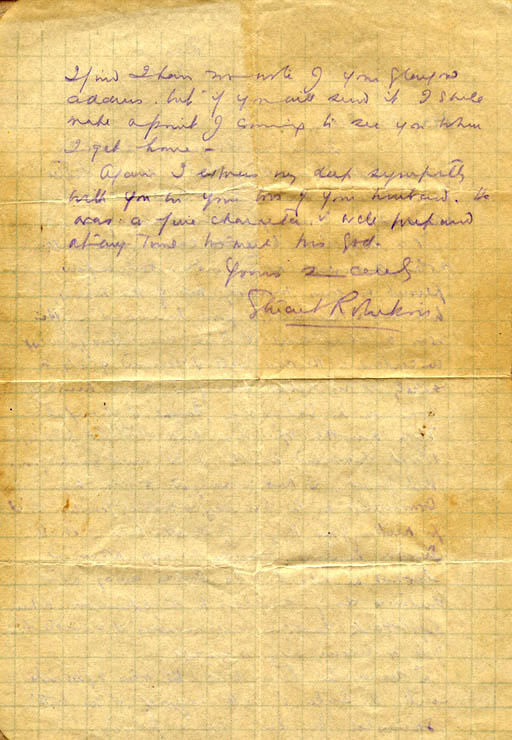 I find I have no note of your Glasgow
address. but if you will send it I shall
make a point of coming to see you when
I get home -
Again I express my deep sympathy
with you in your loss of your husband. He
was a fine character & well prepared
at any time to meet his God.
Yours sincerely
Stuart Robertson